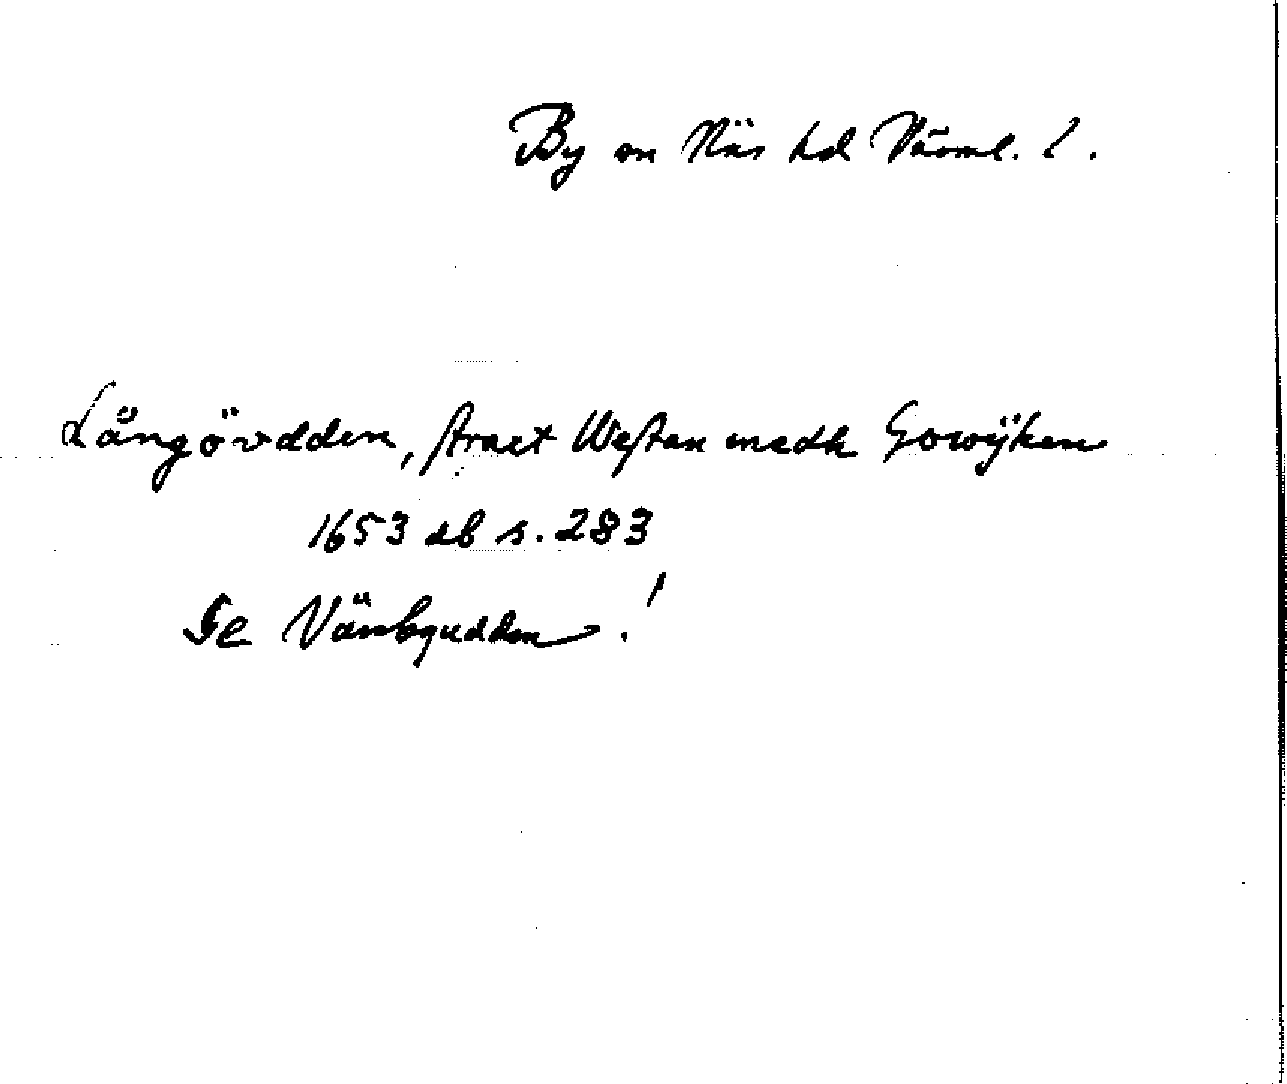 By sn Näs hd Värml. l.
Långövdden, stract Westan medh Gowÿken
1653 db s. 283
Se Vänbyudden!